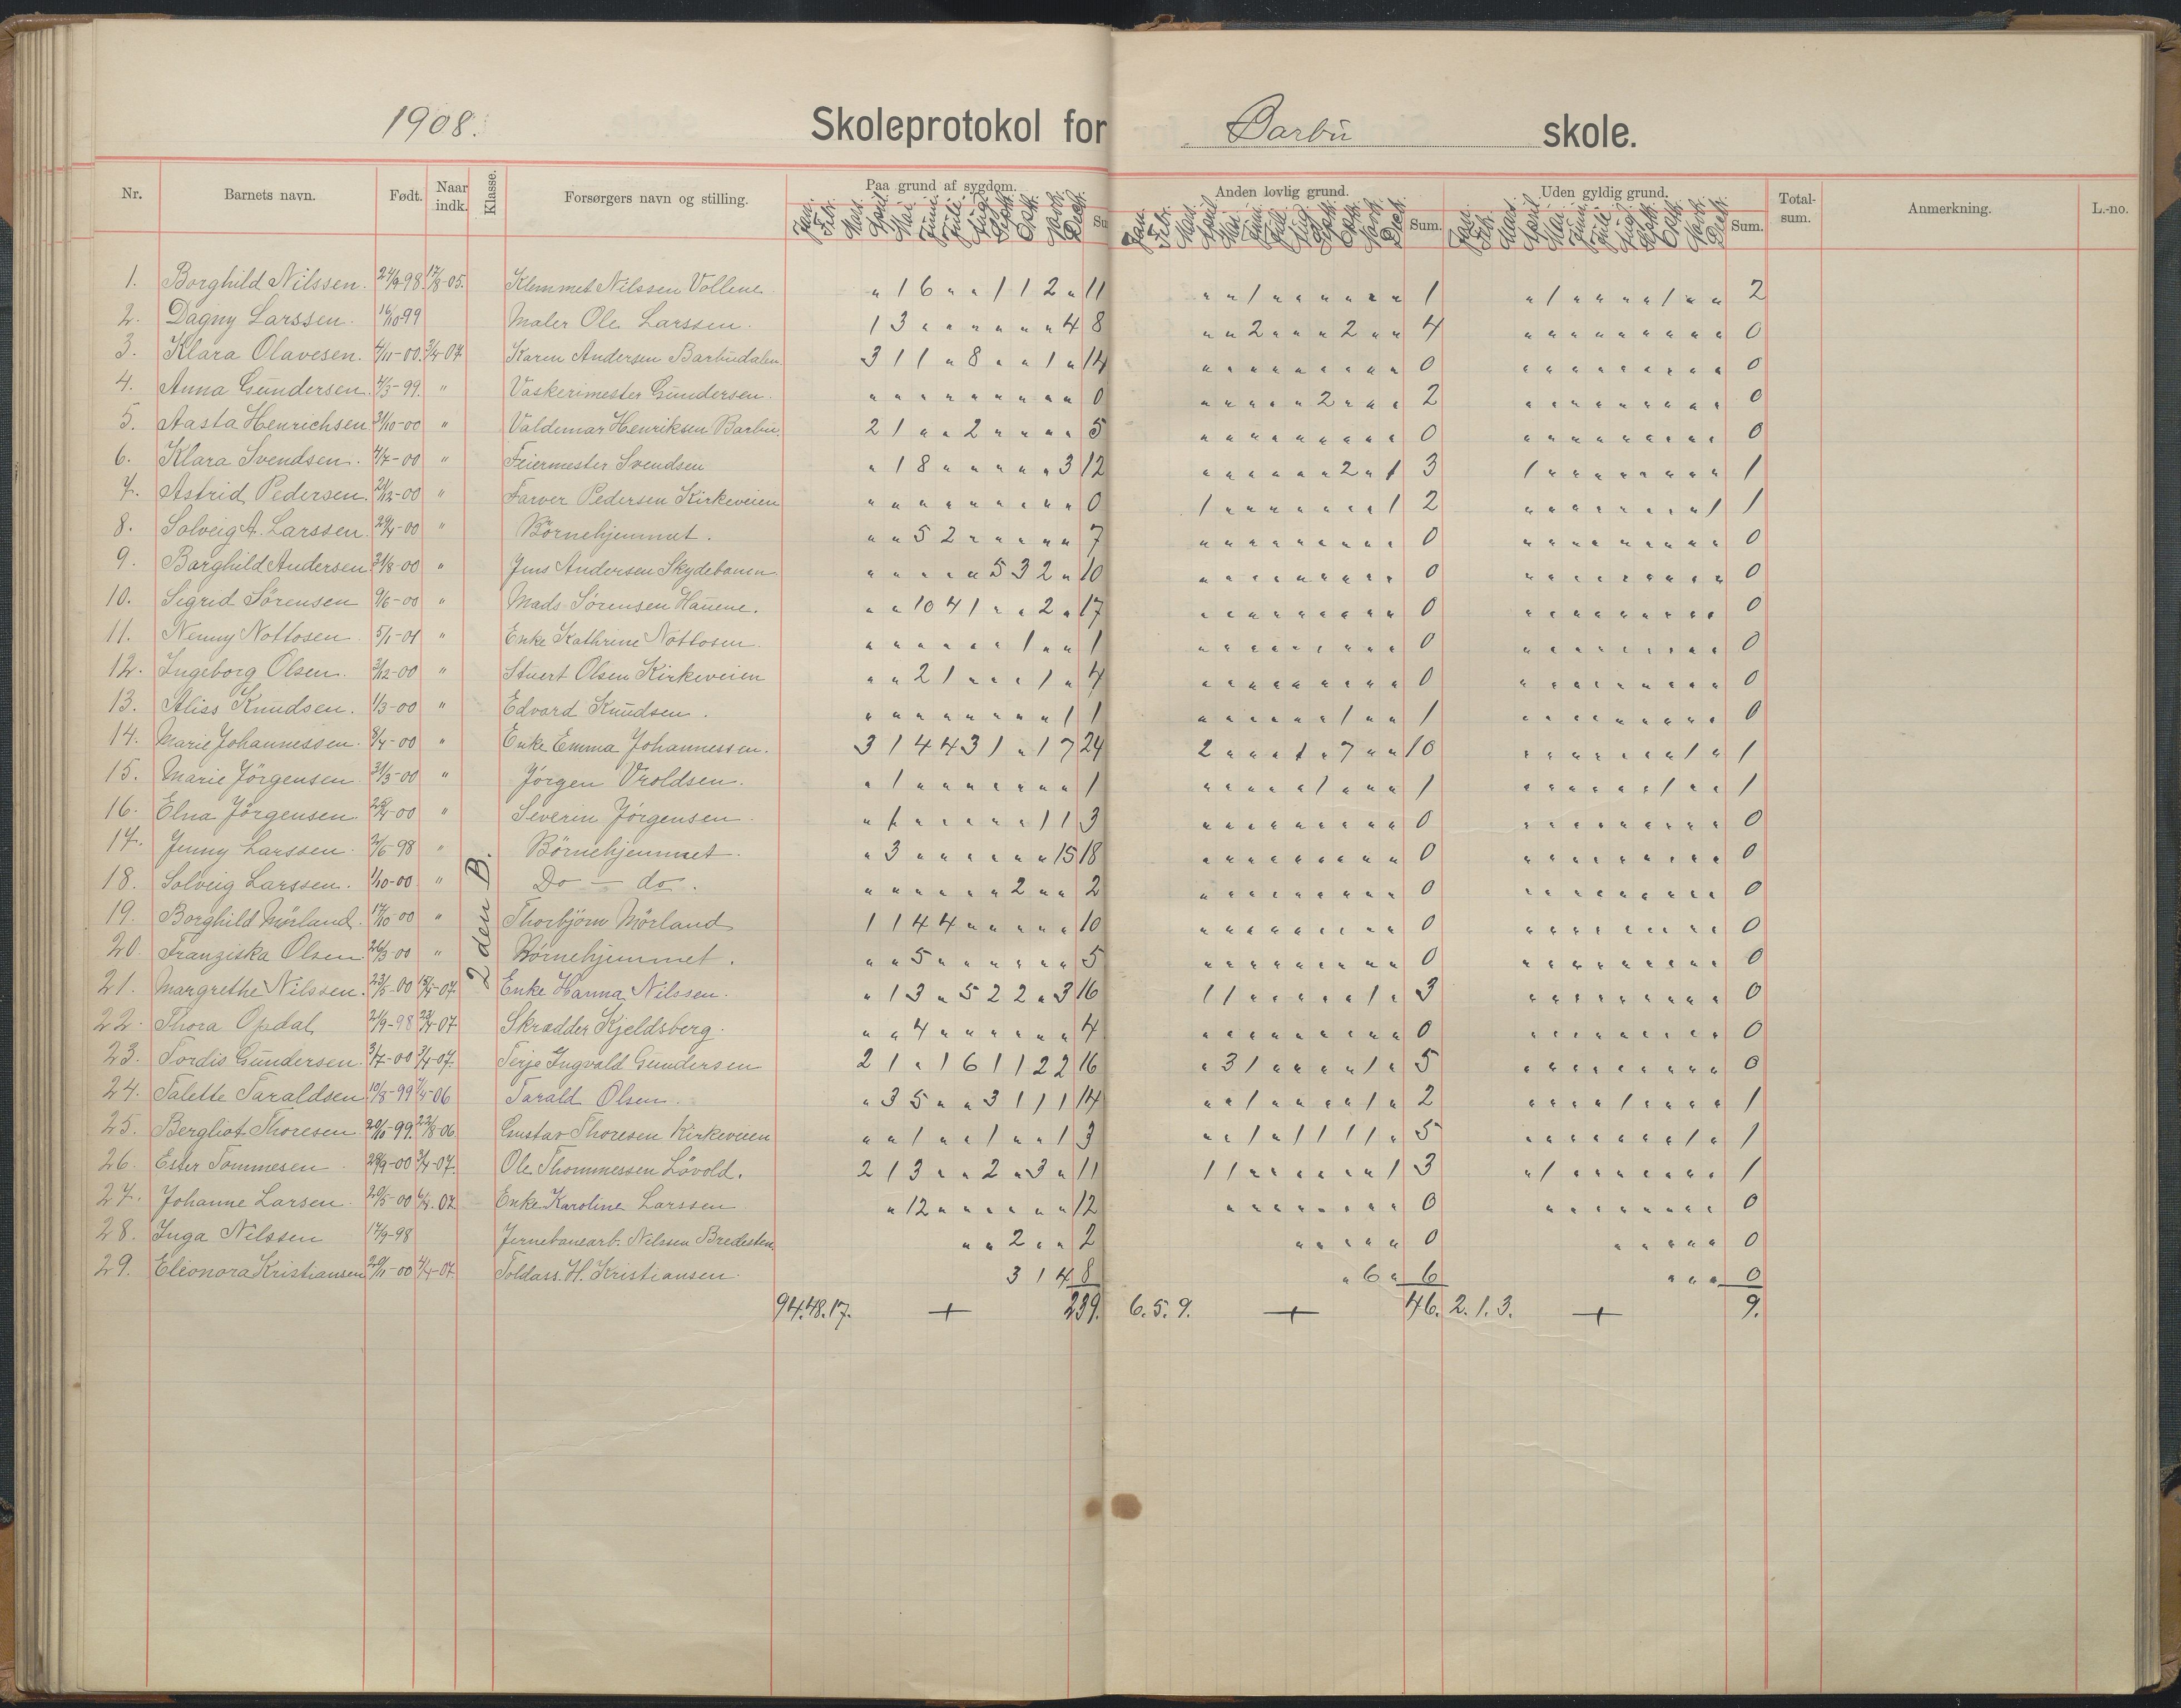 1908. Skoleprotokol for Barbu skole.
Nr. Barnets navn. Født. Naar indk. Klasse. Forsørgers navn og stilling. Paa grund af sygdom. Anden lovlig grund. Uden gyldig grund. Total-sum. Anmerkning. L.-no.
Jan. Febr. Mars. April. Mai. Juni. Juli. Aug. Septr. Oktr. Novbr. Decbr. Su Jan. Febr. Mars. April. Mai. Juni. Juli. Aug. Septr. Oktr. Novbr. Decbr. Sum. Jan. Febr. Mars. April. Mai. Juni. Juli. Aug. Septr. Oktr. Novbr. Decbr. Sum.
1. Borghild Nilssen. 24/9-98. 17/8-05. Klemmet Nilssen Vollene " 1 6 " " 1 1 2 " 11 " " 1 " " " " " " 1 " 1 " " " " 1 " " 2
2. Dagny Larssen. 16/10-99 Maler Ole Larssen. 1 3 " " " " " " 4 8 " " 2 " " " 2 " " 4 " " " " " " " " " 0
3. Klara Olavesen. 4/11-00. 3/4-07 Karen Andersen Barbudalen. 3 1 1 " 8 " " 1 " 14 " " " " " " " " " 0 " " " " " " " " " 0
4. Anna Gundersen. 4/3-99. " Vaskerimester Gundersen. " " " " " " " " " 0 " " " " " 2 " " " 2 " " " " " " " " " 0
5. Aasta Henrichsen 31/10-00 " Valdemar Henriksen Barbu. 2 1 " " 2 " " " " 5 " " " " " " " " " 0 " " " " " " " " " 0
6. Klara Svendsen. 4/7-00 " Feiermester Svendsen " 1 8 " " " " " 3 12 " " " " " " 2 " 1 3 1 " " " " " " " " 1
7. Astrid Pedersen. 24/12-00 " Farver Pedersen Kirkeveien " " " " " " " " " 0 1 " " " " " " " 1 2 " " " " " " " " 1 1
8. Solveig A. Larssen. 29/4-00 " Börnehjemmet. " " 5 2 " " " " " 7 " " " " " " " " " 0 " " " " " " " " " 0
9. Borghild Andersen 31/8-00 " Jens Andersen Skydebanen " " " " " 5 3 2 " 10 " " " " " " " " " 0 " " " " " " " " " 0
10. Sigrid Sörensen 9/6-00 " Mads Sörensen Hauene. " " 10 4 1 " " 2 " 17 " " " " " " " " " 0 " " " " " " " " " 0
11. Nenny Nottosen 5/1-01 " Enke Kathrine Nottosen. " " " " " " 1 " " 1 " " " " " " " " " 0 " " " " " " " " " 0
12. Ingeborg Olsen. 3/12-00 " Stuert Olsen Kirkeveien " " 2 1 " " " 1 " 4 " " " " " " " " " 0 " " " " " " " " " 0
13. Aliss Knudsen. 1/3-00 " Edvard Knudsen. " " " " " " " " 1 1 " " " " " " 1 " " 1 " " " " " " " " " 0
14. Marie Johannessen. 8/4-00 " Enke Emma Johannessen. 3 1 4 4 3 1 " 1 7 24 2 " " " 1 " 7 " " 10 " " " " " " " 1 " 1
15. Marie Jörgensen 31/3-00 " Jörgen Vroldsen. " 1 " " " " " " " 1 " " " " " 1 " " " 1 " " " " " " 1 " " 1
16. Elna Jörgensen. 25/4-00 " Severin Jörgensen. " 1 " " " " " 1 1 3 " " " " " " " " " 0 " " " " " " " " " 0
17. Jenny Larssen. 2/6-98 " Börnehjemmet. " 3 " " " " " " 15 18 " " " " " " " " " 0 " " " " " " " " " 0
18. Solveig Larssen. 1/10-00 " Do - do. " " " " " " 2 " " 2 " " " " " " " " " 0 " " " " " " " " " 0
2den B.
19. Borghild Mörland. 17/10-00 " Thorbjörn Mörland 1 1 4 4 " " " " " 10 " " " " " " " " " 0 " " " " " " " " " 0
20. Franziska Olsen. 26/3-00 " Börnehjemmet. " " 5 " " " " " " 5 " " " " " " " " " 0 " " " " " " " " " 0
21. Margrethe Nilssen. 23/5-00 15/4-07. Enke Hanna Nilssen. " 1 3 " 5 2 2 " 3 16 1 1 " " " " " 1 " 3 " " " " " " " " " 0
22. Thora Opdal 21/9-98 22/4-07 Skrædder Kjeldsberg. " " 4 " " " " " " 4 " " " " " " " " " 0 " " " " " " " " " 0
23. Tordis Gundersen. 3/7-00 3/4-07. Terje Ingvald Gundersen 2 1 " 1 6 1 1 2 2 16 " 3 1 " " " " 1 " 5 " " " " " " " " " 0
24. Talette Taraldsen 10/8-99 7/4-06 Tarald Olsen. " 3 5 " " 3 1 1 1 14 " " 1 " " " " 1 " 2 " " " " 1 " " " " 1
25. Bergliot Thoresen 20/10-99. 22/8-06. Gustav Thoresen Kirkeveien " " 1 " " 1 " " 1 3 " " 1 " 1 1 1 1 " 5 " " " " " " " 1 " 1
26. Ester Tommesen. 28/9-00 3/4-07. Ole Thommessen Lövold. 2 1 3 " " 2 " 3 " 11 1 1 " " " " " " 1 3 " 1 " " " " " " " 1
27. Johanne Larsen. 20/5-00 6/4-07. Enke Karoline Larssen " 12 " " " " " " 12 " " " " " " " " 0 " " " " " " " " 0
28. Inga Nilssen 17/9-98 Jernebanearb. Nilssen Bredesten " " 2 " " 2 " " " " " 0 " " " " " 0
29. Eleonora Kristiansen 20/11-00 4/4-07. Toldass. H. Kristiansen. 3 1 4 8 " 6 " 6 " " " 0
94.48.17. + 239. 6.5.9. + 46. 2.1.3. + 9.